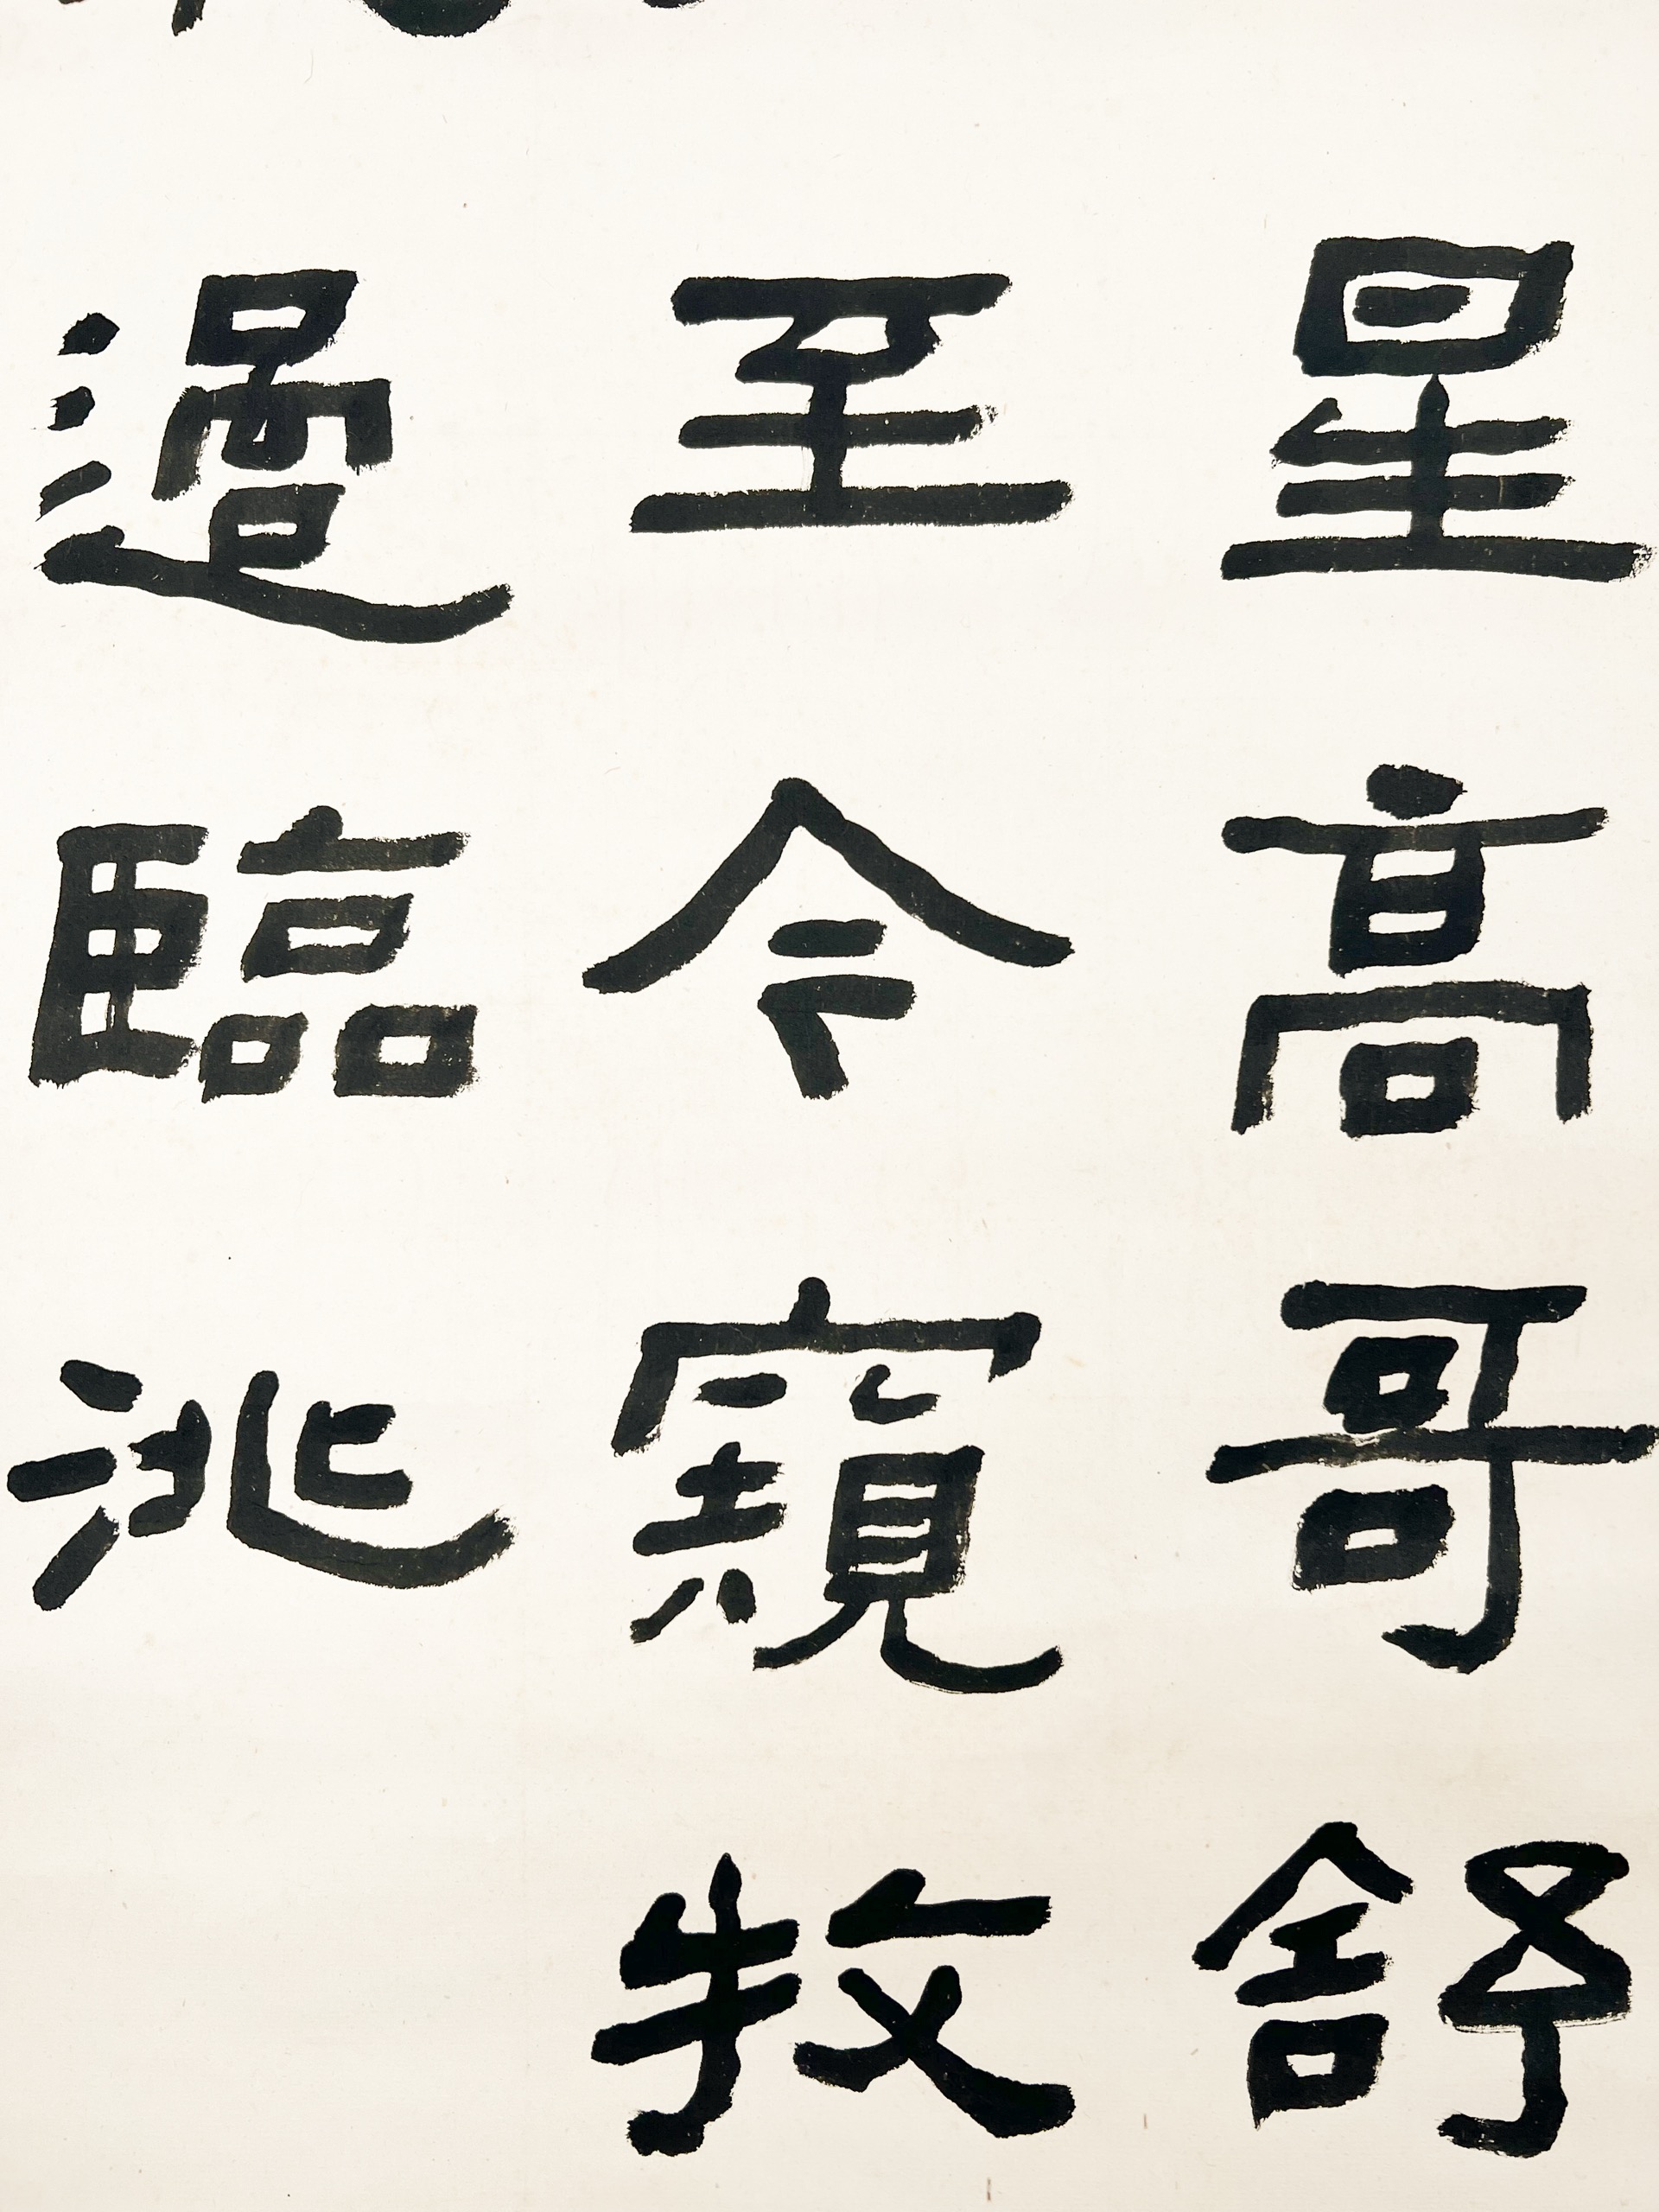 星高哥舒
至今窺牧
過臨洮